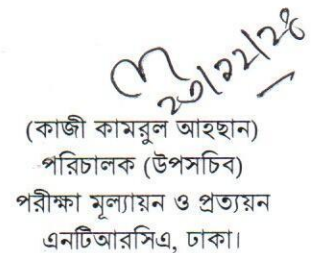 ২৩/১২/২৪
(কাজী কামরুল আহছান)
পরিচালক (উপসচিব)
পরীক্ষা মূল্যায়ন ও প্রত্যয়ন
এনটিআরসিএ, ঢাকা।